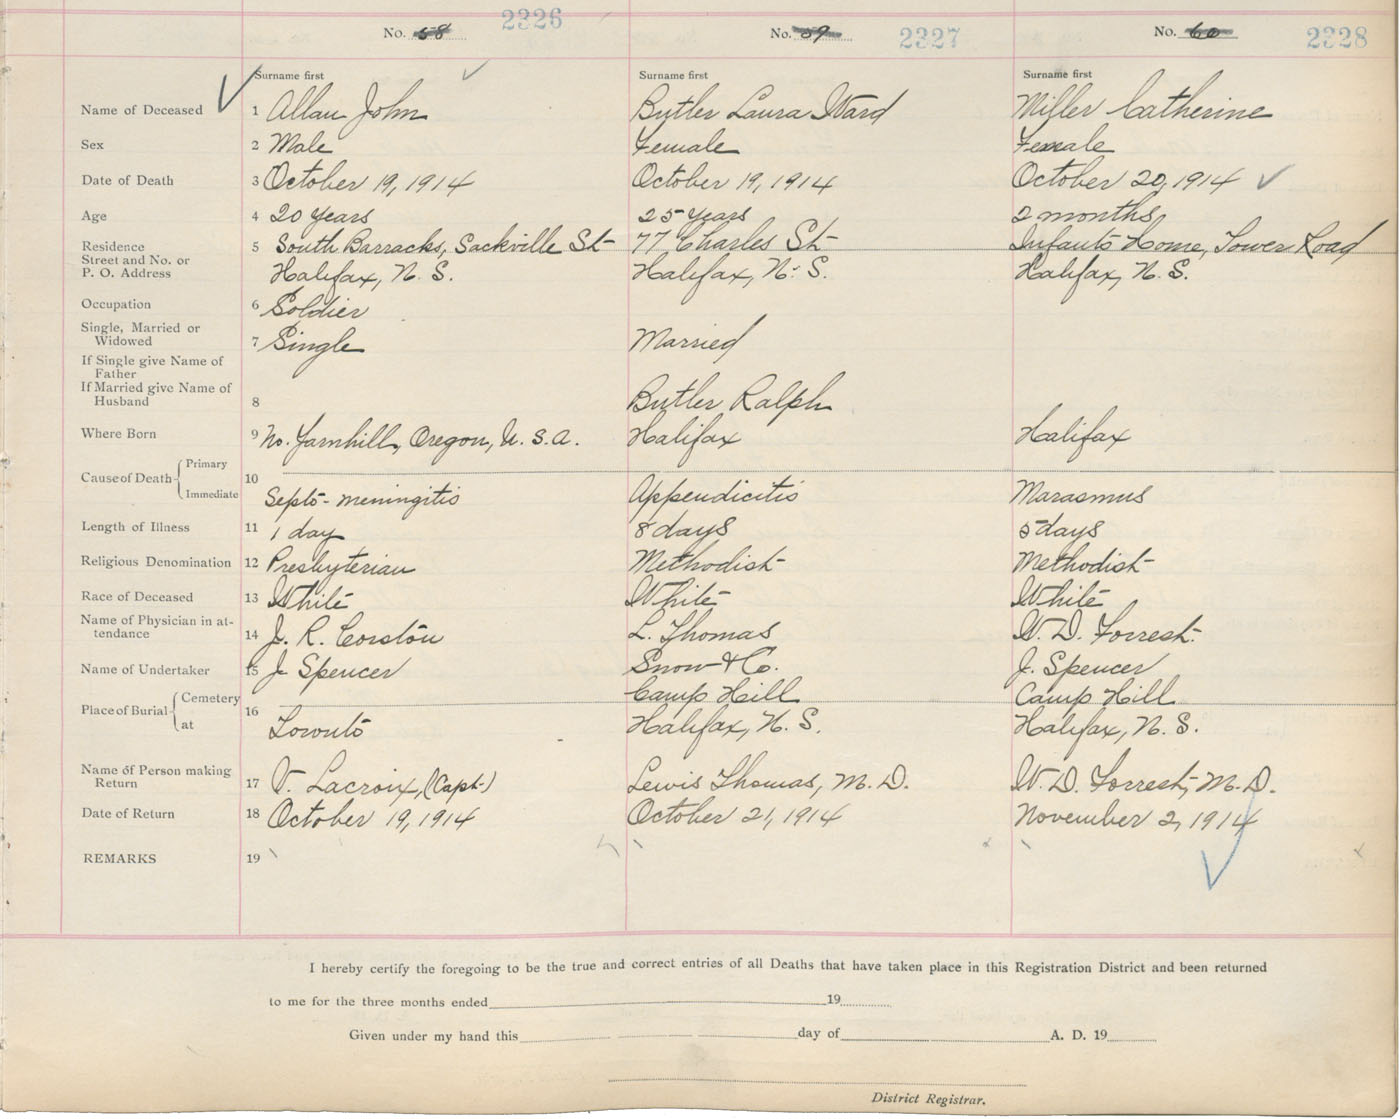 No. 58 2326 No. 59 2327 No. 60 2328
Surname first Surname first Surname first
Name of Deceased 1 Allan John Butler Laura Ward Miller Catherine
Sex 2 Male Female Female
Date of Death 3 October 19, 1914 October 19, 1914 October 20, 1914
Age 4 20 years 25 years 2 months
Residence 5 South Barracks, Sackville St 77 Charles St Infants Home, Tower Road
Street and No. or
P. O. Address Halifax, N. S. Halifax, N. S. Halifax, N. S.
Occupation 6 Soldier
Single, Married or
Widowed 7 Single Married
If Single give Name of
Father
If Married give Name of
Husband 8 Butler Ralph
Where Born 9 No. Yamhill, Oregon, U. S. A. Halifax Halifax
Cause of Death Primary 10
Immediate Septo-meningitis Appendicitis Marasmus
Length of Illness 11 1 day 8 days 5 days
Religious Denomination 12 Presbyterian Methodist Methodist
Race of Deceased 13 White White White
Name of Physician in at-
tendance 14 J. R. Corston L. Thomas W. D. Forrest
Name of Undertaker 15 J Spencer Snow & Co. J. Spencer
Place of Burial Cemetery 16 Camp Hill Camp Hill
at Toronto Halifax, N. S. Halifax, N. S.
Name of Person making
Return 17 V. Lacroix, (Capt.) Lewis Thomas, M. D. W. D. Forrest, M. D.
Date of Return 18 October 19, 1914 October 21, 1914 November 2, 1914
REMARKS 19
I hereby certify the foregoing to be the true and correct entries of all Deaths that have taken place in this Registration District and been returned
to me for the three months ended 19
Given under my hand this day of A. D. 19
District Registrar.